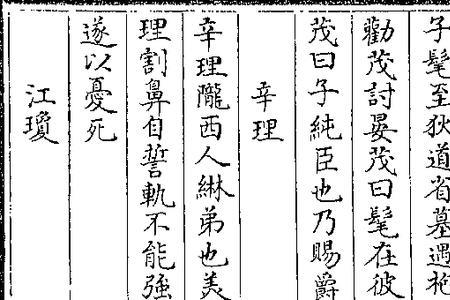 子髦至狄道省墓遇袍
勸茂討晏茂曰髦在彼
茂曰子純臣也乃賜爵
辛理
辛理隴西人綝弟也美
理割鼻自誓軌不能強
遂以憂死
江瓊